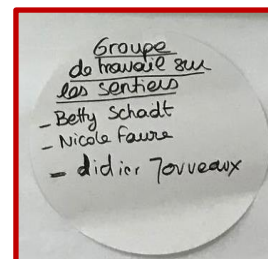 Groupe
de travail sur
les sentiers
- Betty Schadt
- Nicole Faure
- didier Jouveaux